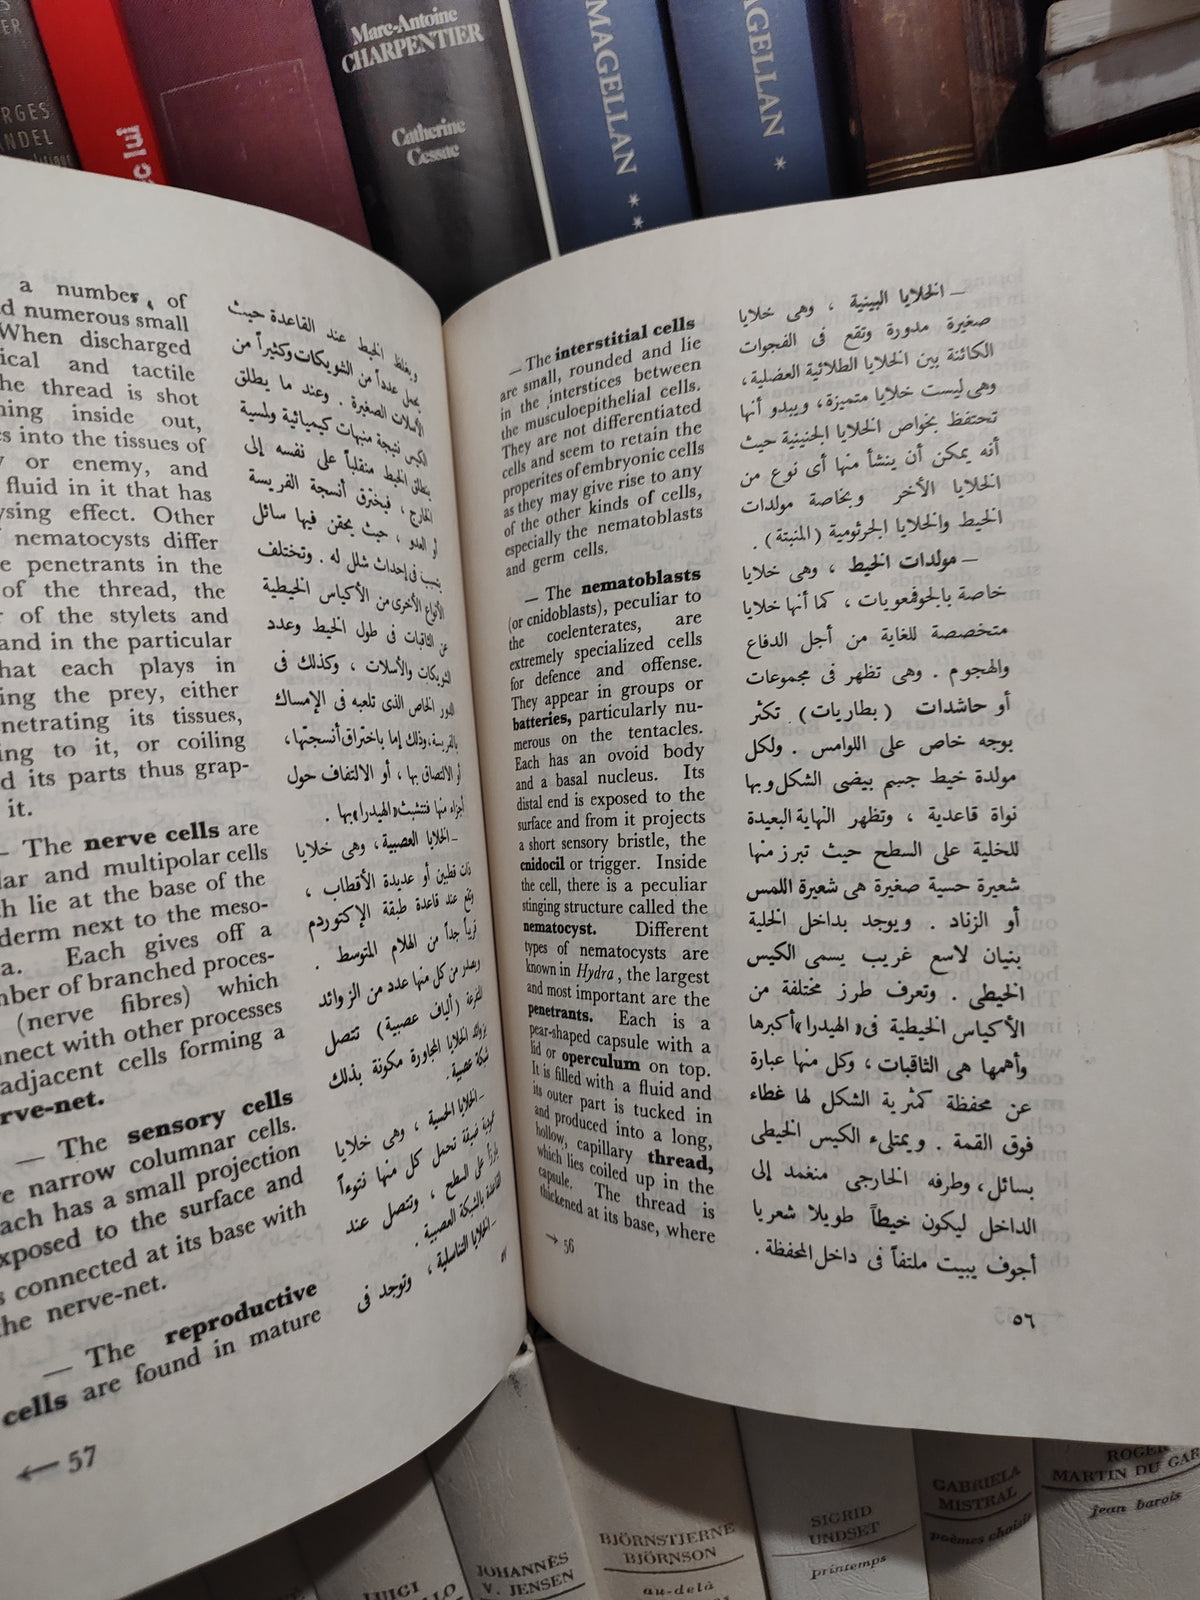 Marc-Antoine
CHARPENTIER
Catherine
Cessac
MAGELLAN
**
MAGELLAN
*
— The interstitial cells
are small, rounded and lie
in the interstices between
the musculoepithelial cells.
They are not differentiated
cells and seem to retain the
properites of embryonic cells
as they may give rise to any
of the other kinds of cells,
especially the nematoblasts
and germ cells.
— The nematoblasts
(or cnidoblasts), peculiar to
the coelenterates, are
extremely specialized cells
for defence and offense.
They appear in groups or
batteries, particularly nu-
merous on the tentacles.
Each has an ovoid body
and a basal nucleus. Its
distal end is exposed to the
surface and from it projects
a short sensory bristle, the
cnidocil or trigger. Inside
the cell, there is a peculiar
stinging structure called the
nematocyst. Different
types of nematocysts are
known in Hydra, the largest
and most important are the
penetrants. Each is a
pear-shaped capsule with a
lid or operculum on top.
It is filled with a fluid and
its outer part is tucked in
and produced into a long,
hollow, capillary thread,
which lies coiled up in the
capsule. The thread is
thickened at its base, where
→ 56
— الخلايا البينية ، وهى خلايا
صغيرة مدورة وتقع فى الفجوات
الكائنة بين الخلايا الطلائية العضلية،
وهى ليست خلايا متميزة، ويبدو أنها
تحتفظ بخواص الخلايا الجنينية حيث
أنه يمكن أن ينشأ منها أى نوع من
الخلايا الأخر وبخاصة مولدات
الخيط والخلايا الجرثومية (المنبتة) .
— مولدات الخيط ، وهى خلايا
خاصة بالجوفمعويات ، كما أنها خلايا
متخصصة للغاية من أجل الدفاع
والهجوم . وهى تظهر فى مجموعات
أو حاشدات (بطاريات) تكثر
بوجه خاص على اللوامس . ولكل
مولدة خيط جسم بيضى الشكل وبها
نواة قاعدية ، وتظهر النهاية البعيدة
للخلية على السطح حيث تبرز منها
شعيرة حسية صغيرة هى شعيرة اللمس
أو الزناد . ويوجد بداخل الخلية
بنيان لاسع غريب يسمى الكيس
الخيطى . وتعرف طرز مختلفة من
الأكياس الخيطية فى «الهيدرا» أكبرها
وأهمها هى الثاقبات ، وكل منها عبارة
عن محفظة كمثرية الشكل لها غطاء
فوق القمة . ويمتلىء الكيس الخيطى
بسائل، وطرفه الخارجى منغمد إلى
الداخل ليكون خيطاً طويلا شعريا
أجوف يبيت ملتفاً فى داخل المحفظة .
٥٦
a number of
d numerous small
When discharged
ical and tactile
he thread is shot
ning inside out,
s into the tissues of
y or enemy, and
fluid in it that has
ysing effect. Other
nematocysts differ
e penetrants in the
of the thread, the
r of the stylets and
and in the particular
hat each plays in
ing the prey, either
netrating its tissues,
ing to it, or coiling
d its parts thus grap-
it.
— The nerve cells are
lar and multipolar cells
h lie at the base of the
derm next to the meso-
a. Each gives off a
nber of branched proces-
(nerve fibres) which
nnect with other processes
adjacent cells forming a
rve-net.
— The sensory cells
e narrow columnar cells.
ach has a small projection
xposed to the surface and
s connected at its base with
the nerve-net.
— The reproductive
cells are found in mature
← 57
ويغلظ الخيط عند القاعدة حيث
يحمل عدداً من الشويكات وكثيراً من
الأسلات الصغيرة . وعند ما يطلق
الكيس نتيجة منبهات كيميائية ولمسية
ينطلق الخيط منقلباً على نفسه إلى
الخارج ، فيخترق أنسجة الفريسة
أو العدو ، حيث يحقن فيها سائل
يتسبب فى إحداث شلل له . وتختلف
الأنواع الأخرى من الأكياس الخيطية
عن الثاقبات فى طول الخيط وعدد
الشويكات والأسلات ، وكذلك فى
الدور الخاص الذى تلعبه فى الإمساك
بالفريسة، وذلك إما باختراق أنسجتها،
أو الالتصاق بها ، أو الالتفاف حول
أجزاء منها فتتشبث «الهيدرا» بها .
— الخلايا العصبية، وهى خلايا
ذات قطبين أو عديدة الأقطاب ،
وتقع عند قاعدة طبقة الإكتوردم
قريباً جداً من الهلام المتوسط .
ويصدر من كل منها عدد من الزوائد
المتفرعة (ألياف عصبية) تتصل
بزوائد الخلايا المجاورة مكونة بذلك
شبكة عصبية.
— الخلايا الحسية ، وهى خلايا
عمودية ضيقة تحمل كل منها نتوءاً
بارزاً على السطح ، وتتصل عند
القاعدة بالشبكة العصبية .
— الخلايا التناسلية ، وتوجد فى
JOHANNÈS
V. JENSEN
BJÖRNSTJERNE
BJÖRNSON
au-delà
SIGRID
UNDSET
printemps
GABRIELA
MISTRAL
poèmes choisis
ROGER
MARTIN DU GAR
jean barois
LUIGI